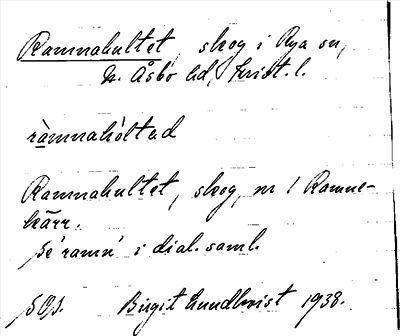 Ramnahultet, skog i Rya sn,
N. Åsbo hd, Krist. l.
ràmnahóltad
Ramnahultet, skog, nr 1 Ramne-
kärr.
Se 'ramn' i dial. saml.
Birgit Lundkvist 1938.